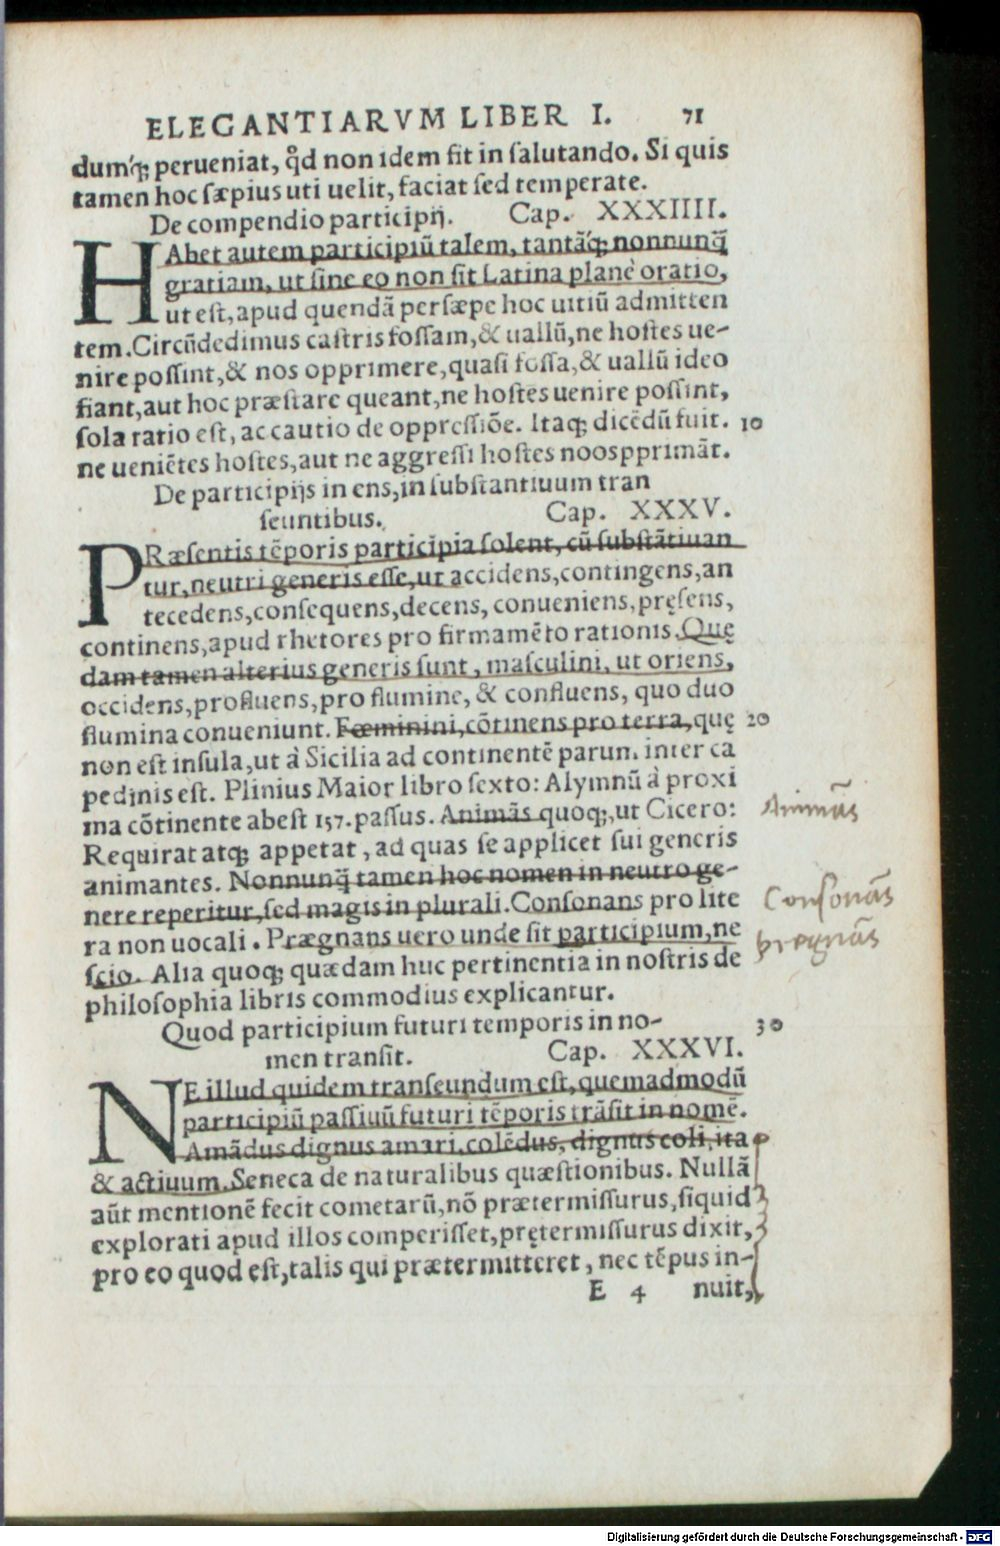 ELEGANTIARVM LIBER I. 71
dum'q; perueniat, qd̊ non idem fit in salutando. Si quis
tamen hoc sæpius uti uelit, faciat sed temperate.
De compendio participij. Cap. XXXIIII.
HAbet autem participiũ talem, tantã'q; nonnunq̃
gratiam, ut sine eo non sit Latina planè oratio,
ut est, apud quendã persæpe hoc uitiũ admitten
tem. Circũdedimus castris fossam, & uallũ, ne hostes ue-
nire possint, & nos opprimere, quasi fossa, & uallũ ideo
fiant, aut hoc præstare queant, ne hostes uenire possint,
sola ratio est, ac cautio de oppressiõe. Itaq; dicẽdũ fuit. 10
ne ueniẽtes hostes, aut ne aggressi hostes noospprimãt.
De participijs in ens, in substantiuum tran
seuntibus. Cap. XXXV.
PRæsentis tẽporis participia solent, cũ substãtiuan
tur, neutri generis esse, ut accidens, contingens, an
tecedens, consequens, decens, conueniens, pręsens,
continens, apud rhetores pro firmamẽto rationis. Quę
dam tamen alterius generis sunt, masculini, ut oriens,
occidens, profluens, pro flumine, & confluens, quo duo
flumina conueniunt. Fœminini, cõtinens pro terra, quę 20
non est insula, ut à Sicilia ad continentẽ parum inter ca
pedinis est. Plinius Maior libro sexto: Alymnũ à proxi
ma cõtinente abest 157. passus. Animãs quoq;, ut Cicero:
Requirat atq; appetat, ad quas se applicet sui generis
animantes. Nonnunq̃ tamen hoc nomen in neutro ge-
nere reperitur, sed magis in plurali. Consonans pro lite
ra non uocali. Prægnans uero unde sit participium, ne
scio. Alia quoq; quædam huc pertinentia in nostris de
philosophia libris commodius explicantur.
Quod participium futuri temporis in no- 30
men transit. Cap. XXXVI.
NE illud quidem transeundum est, quemadmodũ
participiũ passiuũ futuri tẽporis trãsit in nomẽ.
Amãdus dignus amari, colẽdus, dignus coli, ita
& actiuum. Seneca de naturalibus quæstionibus. Nullã
aũt mentionẽ fecit cometarũ, nõ prætermissurus, siquid
explorati apud illos comperisset, prętermissurus dixit,
pro eo quod est, talis qui prætermitteret, nec tẽpus in-
E 4 nuit,
Animãs
Consonãs
pregnãs
Digitalisierung gefördert durch die Deutsche Forschungsgemeinschaft - DFG